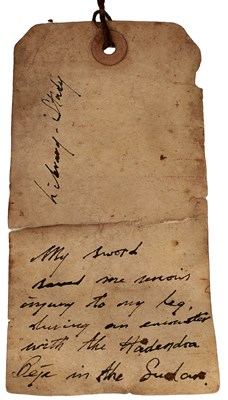 Library - Study
My sword
saved me serious
injury to my leg,
during an encounter
with the Hadendoa
Beja in the Sudan.